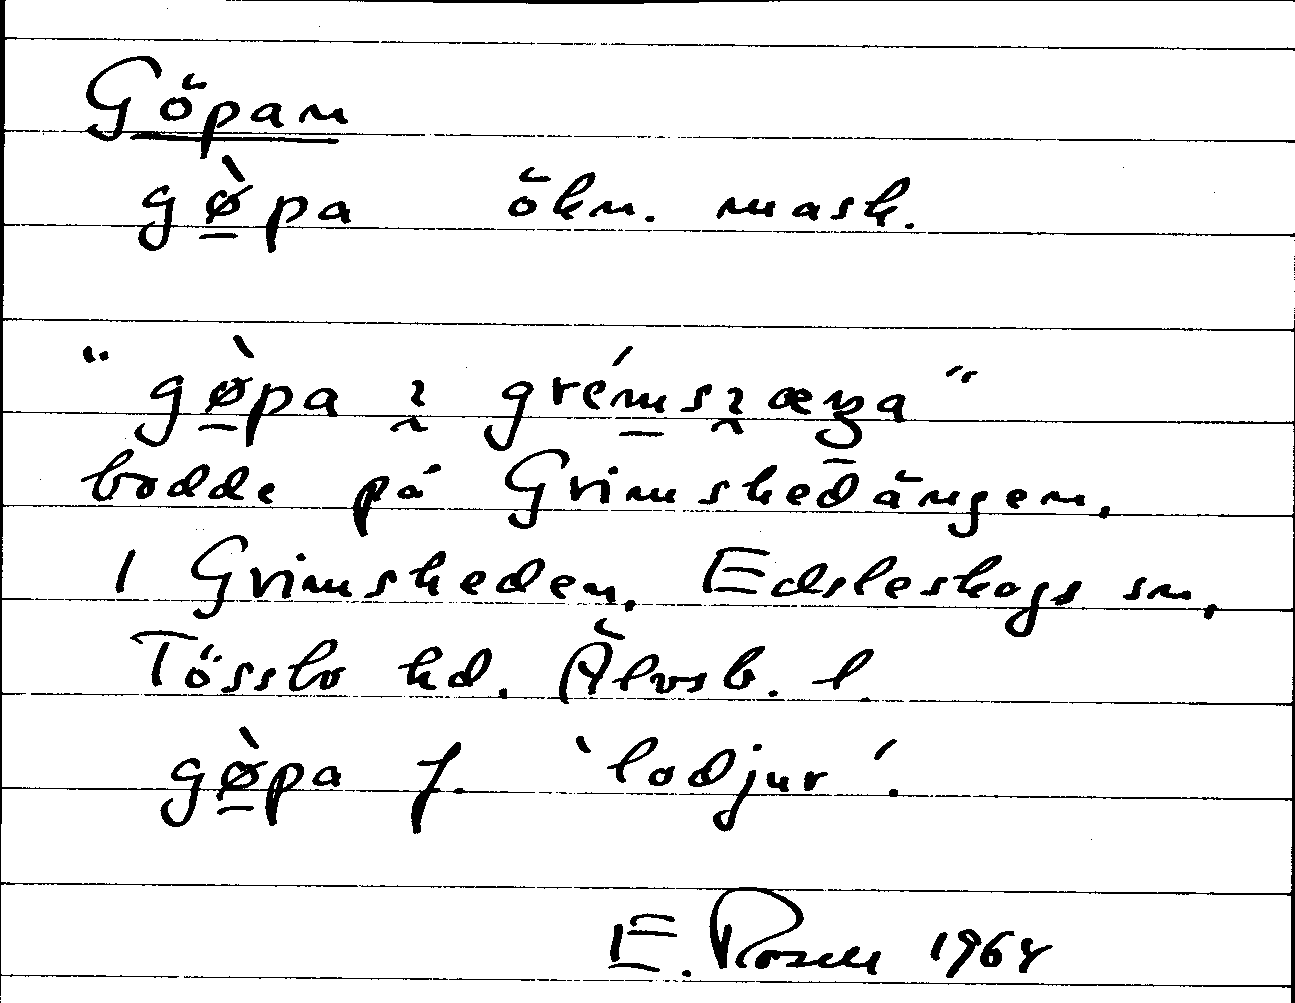 Göpan
gø̀pa ökn. mask.
"gø̀pa ı grémsıæŋa"
bodde på Grimshedängen,
1 Grimsheden, Edsleskogs sn,
Tössbo hd. Älvsb. l.
gø̀pa f. 'lodjur'.
E. Rosell 1964